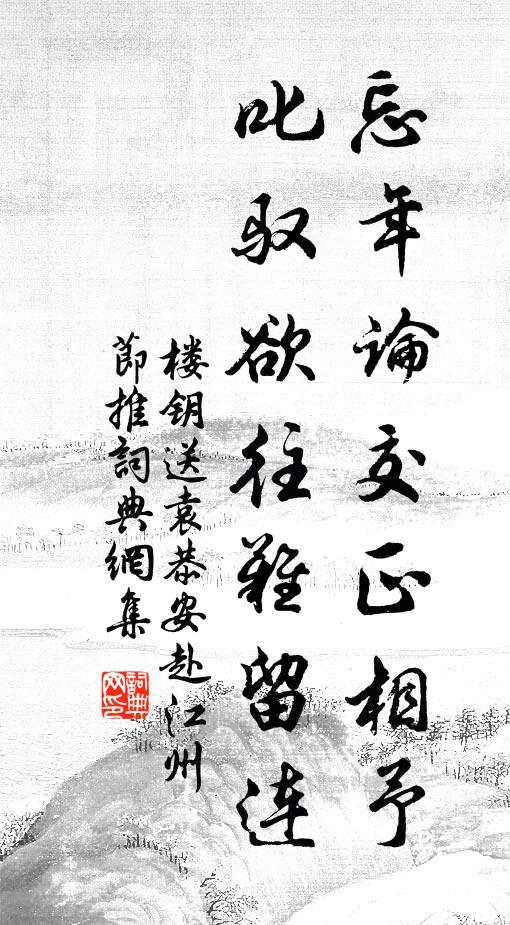 忘年論交正相予
叱馭欲往難留連
楼钥送袁恭安赴江州
節推詞典網集
詞典
网印